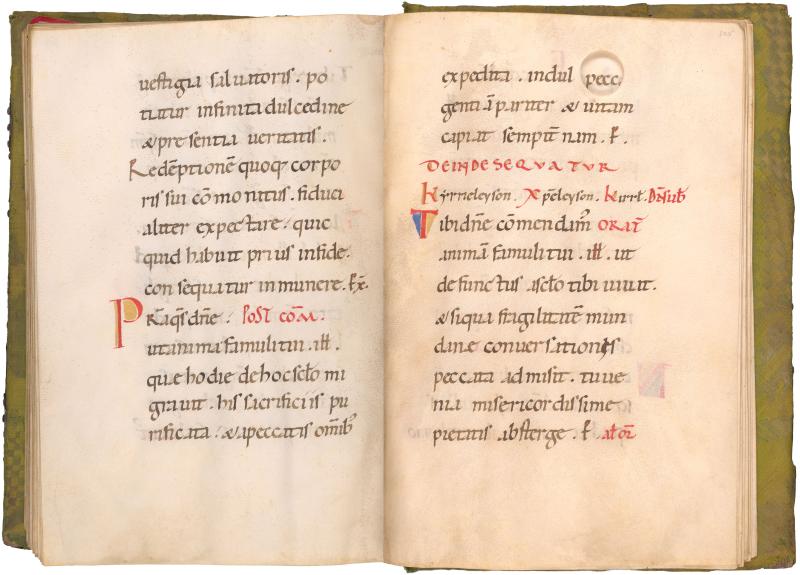 vestigia saluatoris. po
tiatur infinita dulcedine
& presentia ueritatis.
Redēptionē quoq; corpo
ris sui cōmonitus. fiduci
aliter expectare. quic
quid habuit prius in fide.
consequatur in munere.
Prq̄s dn̄e. Post com̄.
ut anima famuli tui. ill.
quae hodie de hoc sclo mi
grauit. his sacrificiis pu
rificata. & a peccatis omib;
expedita. indul pecc
gentiā pariter & uitam
capiat sempit̄nam. P̄.
DEINDE SEQUATUR
Kyrrieleyson. Xpeleyson. Kirrl. Dn̄s uob
Tibi dn̄e cōmendam̄ ORAT̄
animā famuli tui. ill. ut
defunctus sclo tibi uiuat.
& siqua fragilitatē mun
danae conuersationis
peccata admisit. tu ue
nia misericordissime
pietatis absterge. P̄. al or̄